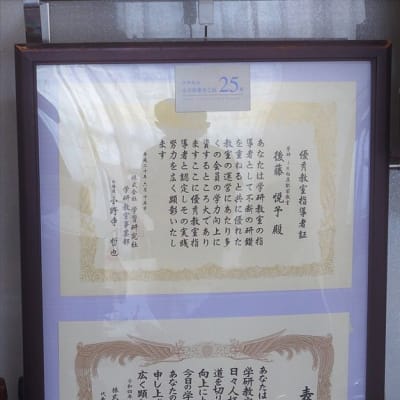 25年
優秀教室指導者証
後藤 悦子 殿
あなたは学研教室の指
導者として不断の研鑽
を重ねると共に優れた
教室の運営にあたり多
くの会員の学力向上に
資するところ大であり
ますここに優秀教室指
導者と認定しその実践
努力を広く顕彰いたし
ます
平成二十年六月十五日
株式会社 学習研究社
学研教室事業部
小野寺 哲也
表
あなたは
学研教室
日々人
道を切り
向上に
今日の学
あなたの
申し上
広く顕
令和四年
株式